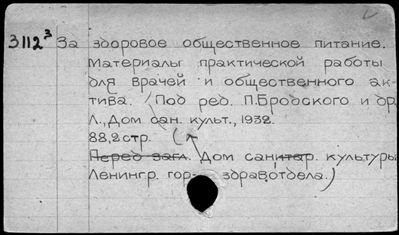 3112³ За здоровое общественное питание.
Материалы практической работы
для врачей и общественного ак-
тива. (Под ред. П.Бродского и др
Л., Дом сан. культ., 1932.
88,2 стр.
(Перед загл. Дом санитар. культуры
Ленингр. гор- здравотдела.)